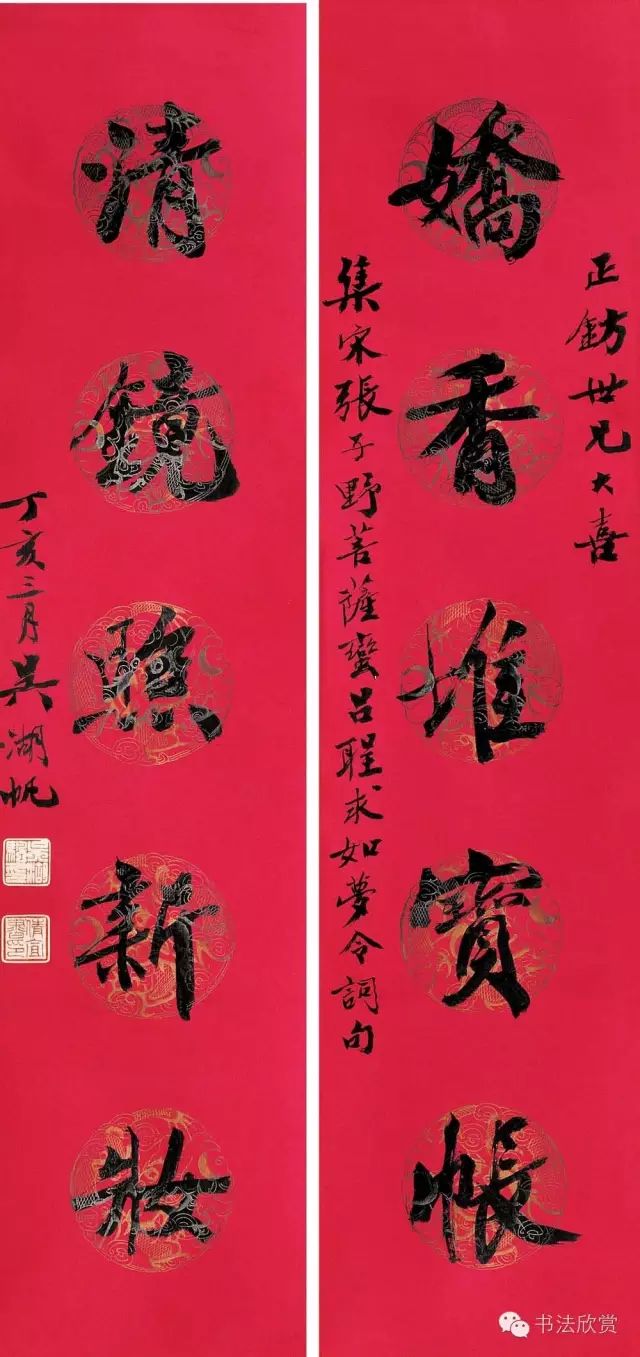 正鈁世兄大喜
嬌香堆寶帳
集宋張子野菩薩蠻呂聖求如夢令詞句
清鏡照新妝
丁亥三月吳湖帆
书法欣赏